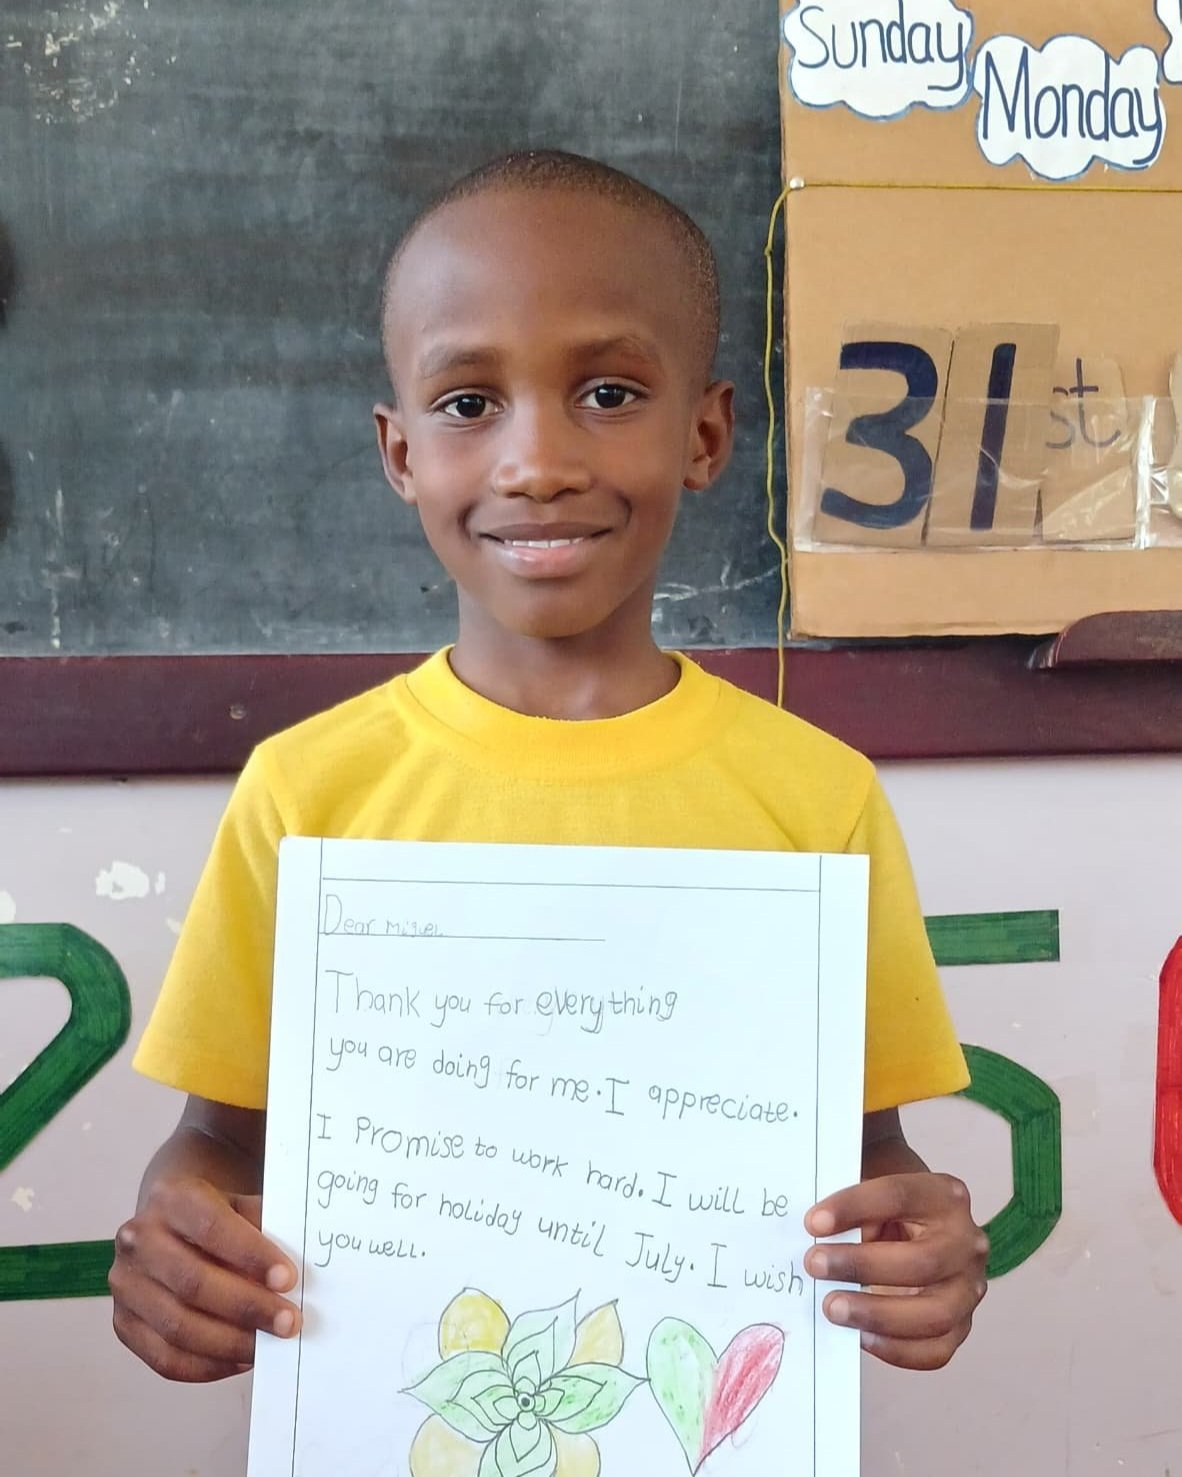 Sunday
Monday
31st
Dear Miguel
Thank you for everything
you are doing for me. I appreciate.
I Promise to work hard. I will be
going for holiday until July. I wish
you well.
2
5